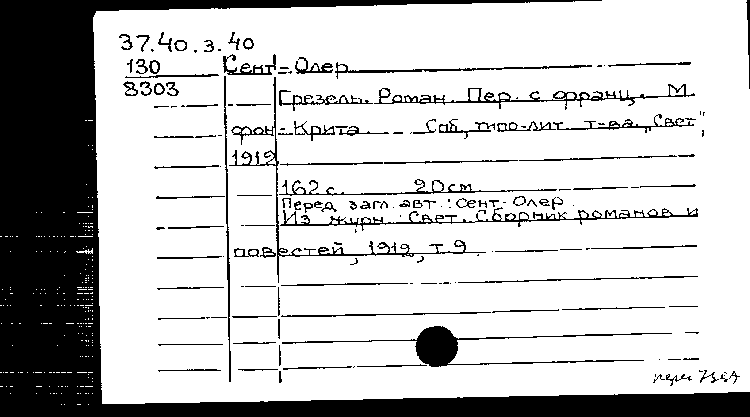 37.40.3.40
130 Сент-Олер
8303
Грезель. Роман. Пер. с франц. М.
фон-Крита. Спб, типо-лит. т-ва „Свет",
1912
162 с. 20 см.
Перед загл. авт.: Сент-Олер
Из журн.: Свет. Сборник романов и
повестей, 1912, т. 9.